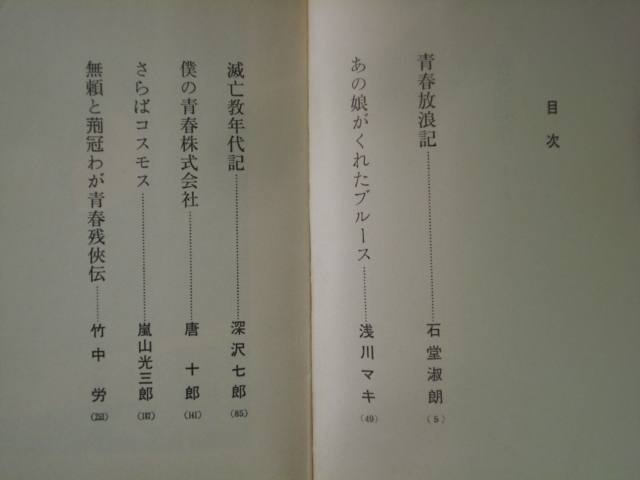 目次
青春放浪記……………………石堂淑朗(5)
あの娘がくれたブルース…………浅川マキ(49)
滅亡教年代記……………………深沢七郎(85)
僕の青春株式会社………………唐十郎(141)
さらばコスモス……………………嵐山光三郎(187)
無頼と荊冠わが青春残俠伝………竹中労(253)